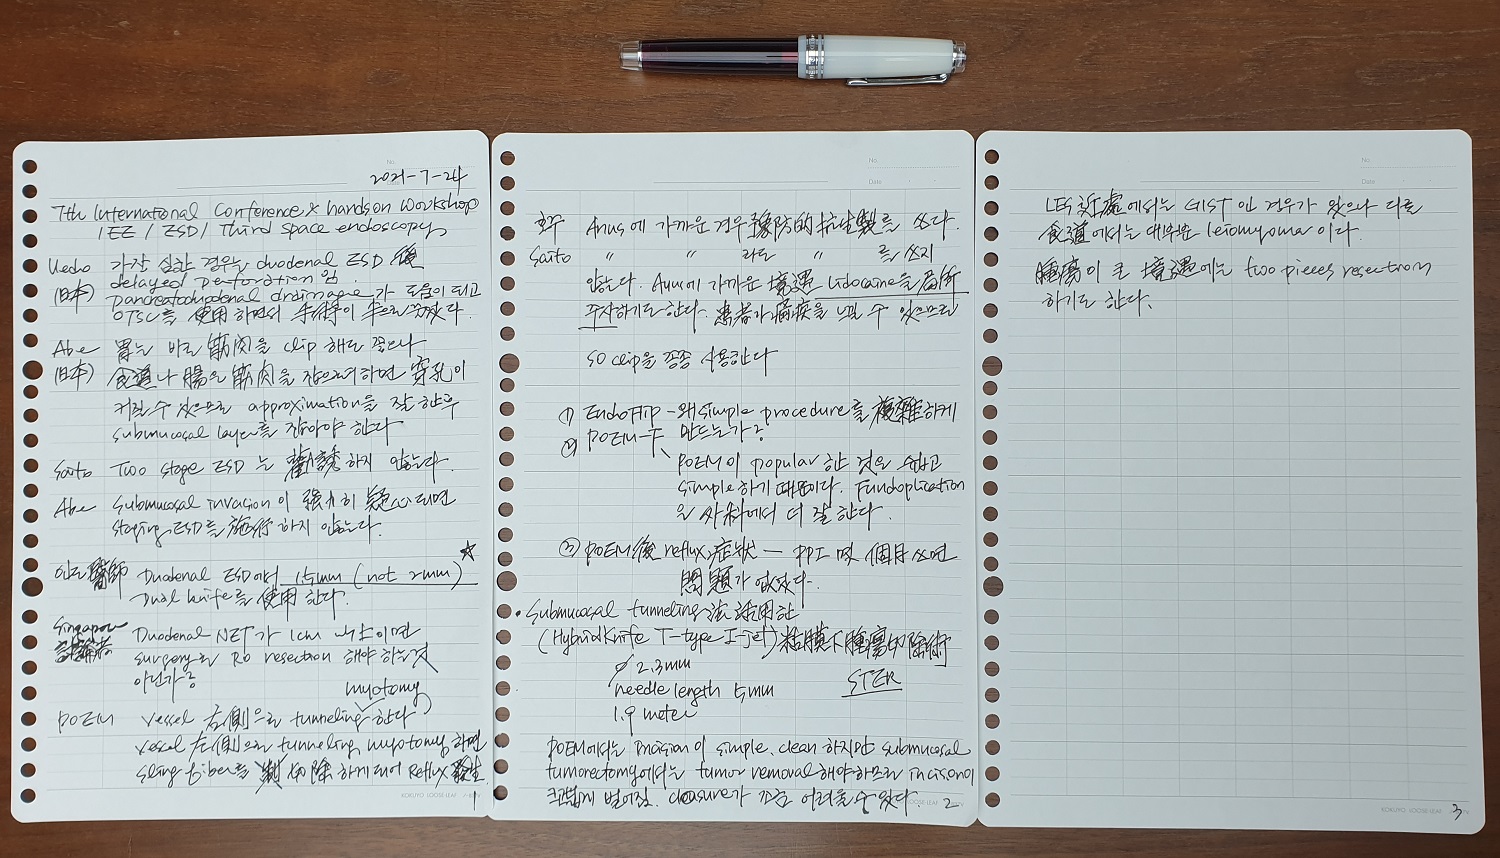 No.
Date
2021-7-24
7th International Conference & hands on workshop
IEZ / ESD / Third space endoscopy
Uedo 가장 심한 경우는 duodenal ESD 後
(日本) delayed perforation 임.
pancreatoduodenal drainage가 도움이 되고
OTSC를 使用하면서 手術이 半으로 줄었다.
Abe 胃는 바로 筋肉을 clip 해도 좋으나
(日本) 食道나 腸은 筋肉을 잡으려 하면 穿孔이
커질 수 있으므로 approximation을 잘 한 후
submucosal layer를 잡아야 한다
Saito Two stage ESD는 勸誘하지 않는다.
Abe Submucosal invasion이 强力히 疑心되면
staging ESD를 施行하지 않는다.
인도 醫師 Duodenal ESD에서 1.5mm (not 2mm) ☆
Dual knife를 使用한다.
Singapore 討論者 Duodenal NET가 1cm 이면
surgery로 R0 resection 해야 하는 것
아닌가?
myotomy
POEM vessel 右側으로 tunneling 한다
vessel 左側으로 tunneling, myotomy 하면
sling fiber를 切除하게 되어 Reflux 發生
KOKUYO LOOSE-LEAF
1
No.
Date
호주 Anus에 가까운 경우 豫防的 抗生製를 쓰다.
Saito 〃 〃 라도 〃 를 쓰지
않는다. Anus에 가까운 境遇 Lidocaine을 局所
주사하기도 한다. 患者가 痛疾을 느낄 수 있으므로
SO clip을 종종 사용한다
① EndoFLIP - 왜 simple procedure를 複雜하게
② POEM-F 만드는가?
POEM이 popular 한 것은 쉽고
simple 하기 때문이다. Fundoplication
은 外科에서 더 잘 한다.
③ POEM後 reflux 症狀 — PPI 몇 個月 쓰면
問題가 없었다.
• Submucosal tunneling法 活用한
(HybridKnife T-type I-jet) 粘膜下腫瘍切除術
∅ 2.3mm
STER
needle length 5mm
1.9 meter
POEM에서는 incision이 simple, clean 하지만 submucosal
tumorectomy에서는 tumor removal 해야 하므로 incision이
크게 벌어짐. closure가 조금 어려울 수 있다.
LOOSE-LEAF
2
No.
Date
LES 近處에서는 GIST 인 경우가 있으나 다른
食道에서는 대부분 leiomyoma 이다.
腫瘍이 큰 境遇에는 two pieces resection
하기도 한다.
KOKUYO LOOSE-LEAF
3